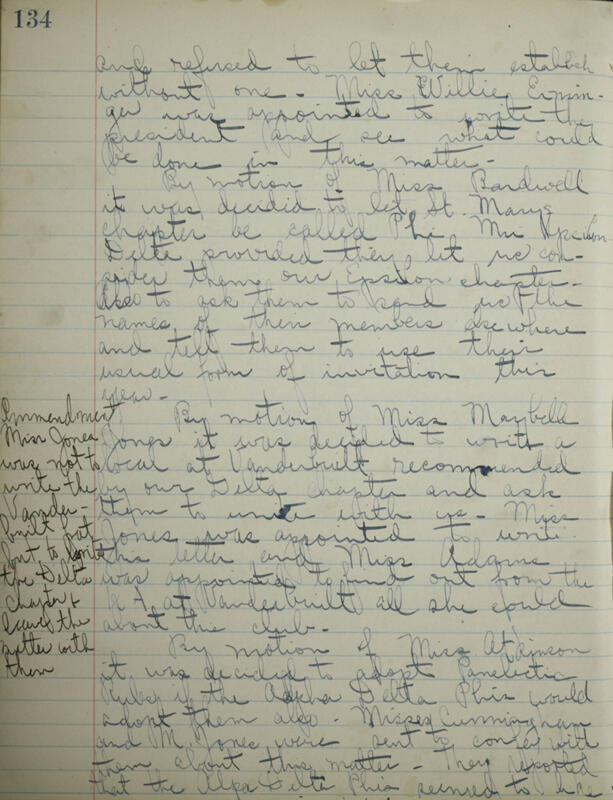 134
and refused to let them establish
without one - Miss Willie Ermin-
ger was appointed to write the
president and see what could
be done in this matter -
By motion of Miss Bardwell
it was decided to let St. Marys
chapter be called Phi Mu Upsilon
Delta provided they let us con-
sider them our Epsilon chapter -
Also to ask them to send us the
names of their members elsewhere
and tell them to use their
usual form of invitation this
year -
By motion of Miss Maybelle
Jones it was decided to write a
local at Vanderbuilt recommended
by our Delta chapter and ask
them to unite with us - Miss
Jones was appointed to write
this letter and Miss Adams
was appointed to find out from the
K A at Vanderbuilt all she could
about this club -
By motion of Miss Atkinson
it was decided to adopt Panelectic
Rules if the Alpha Delta Phis would
adopt them also - Misses Cunningham
and M. Jones were sent to confer with
them about this matter - They reported
that the Alpa Delta Phis seemed to like
Ammendment
Miss Jones
was not to
write the
Vander-
built
but to
the Delta
Chapter &
leave the
matter with
them